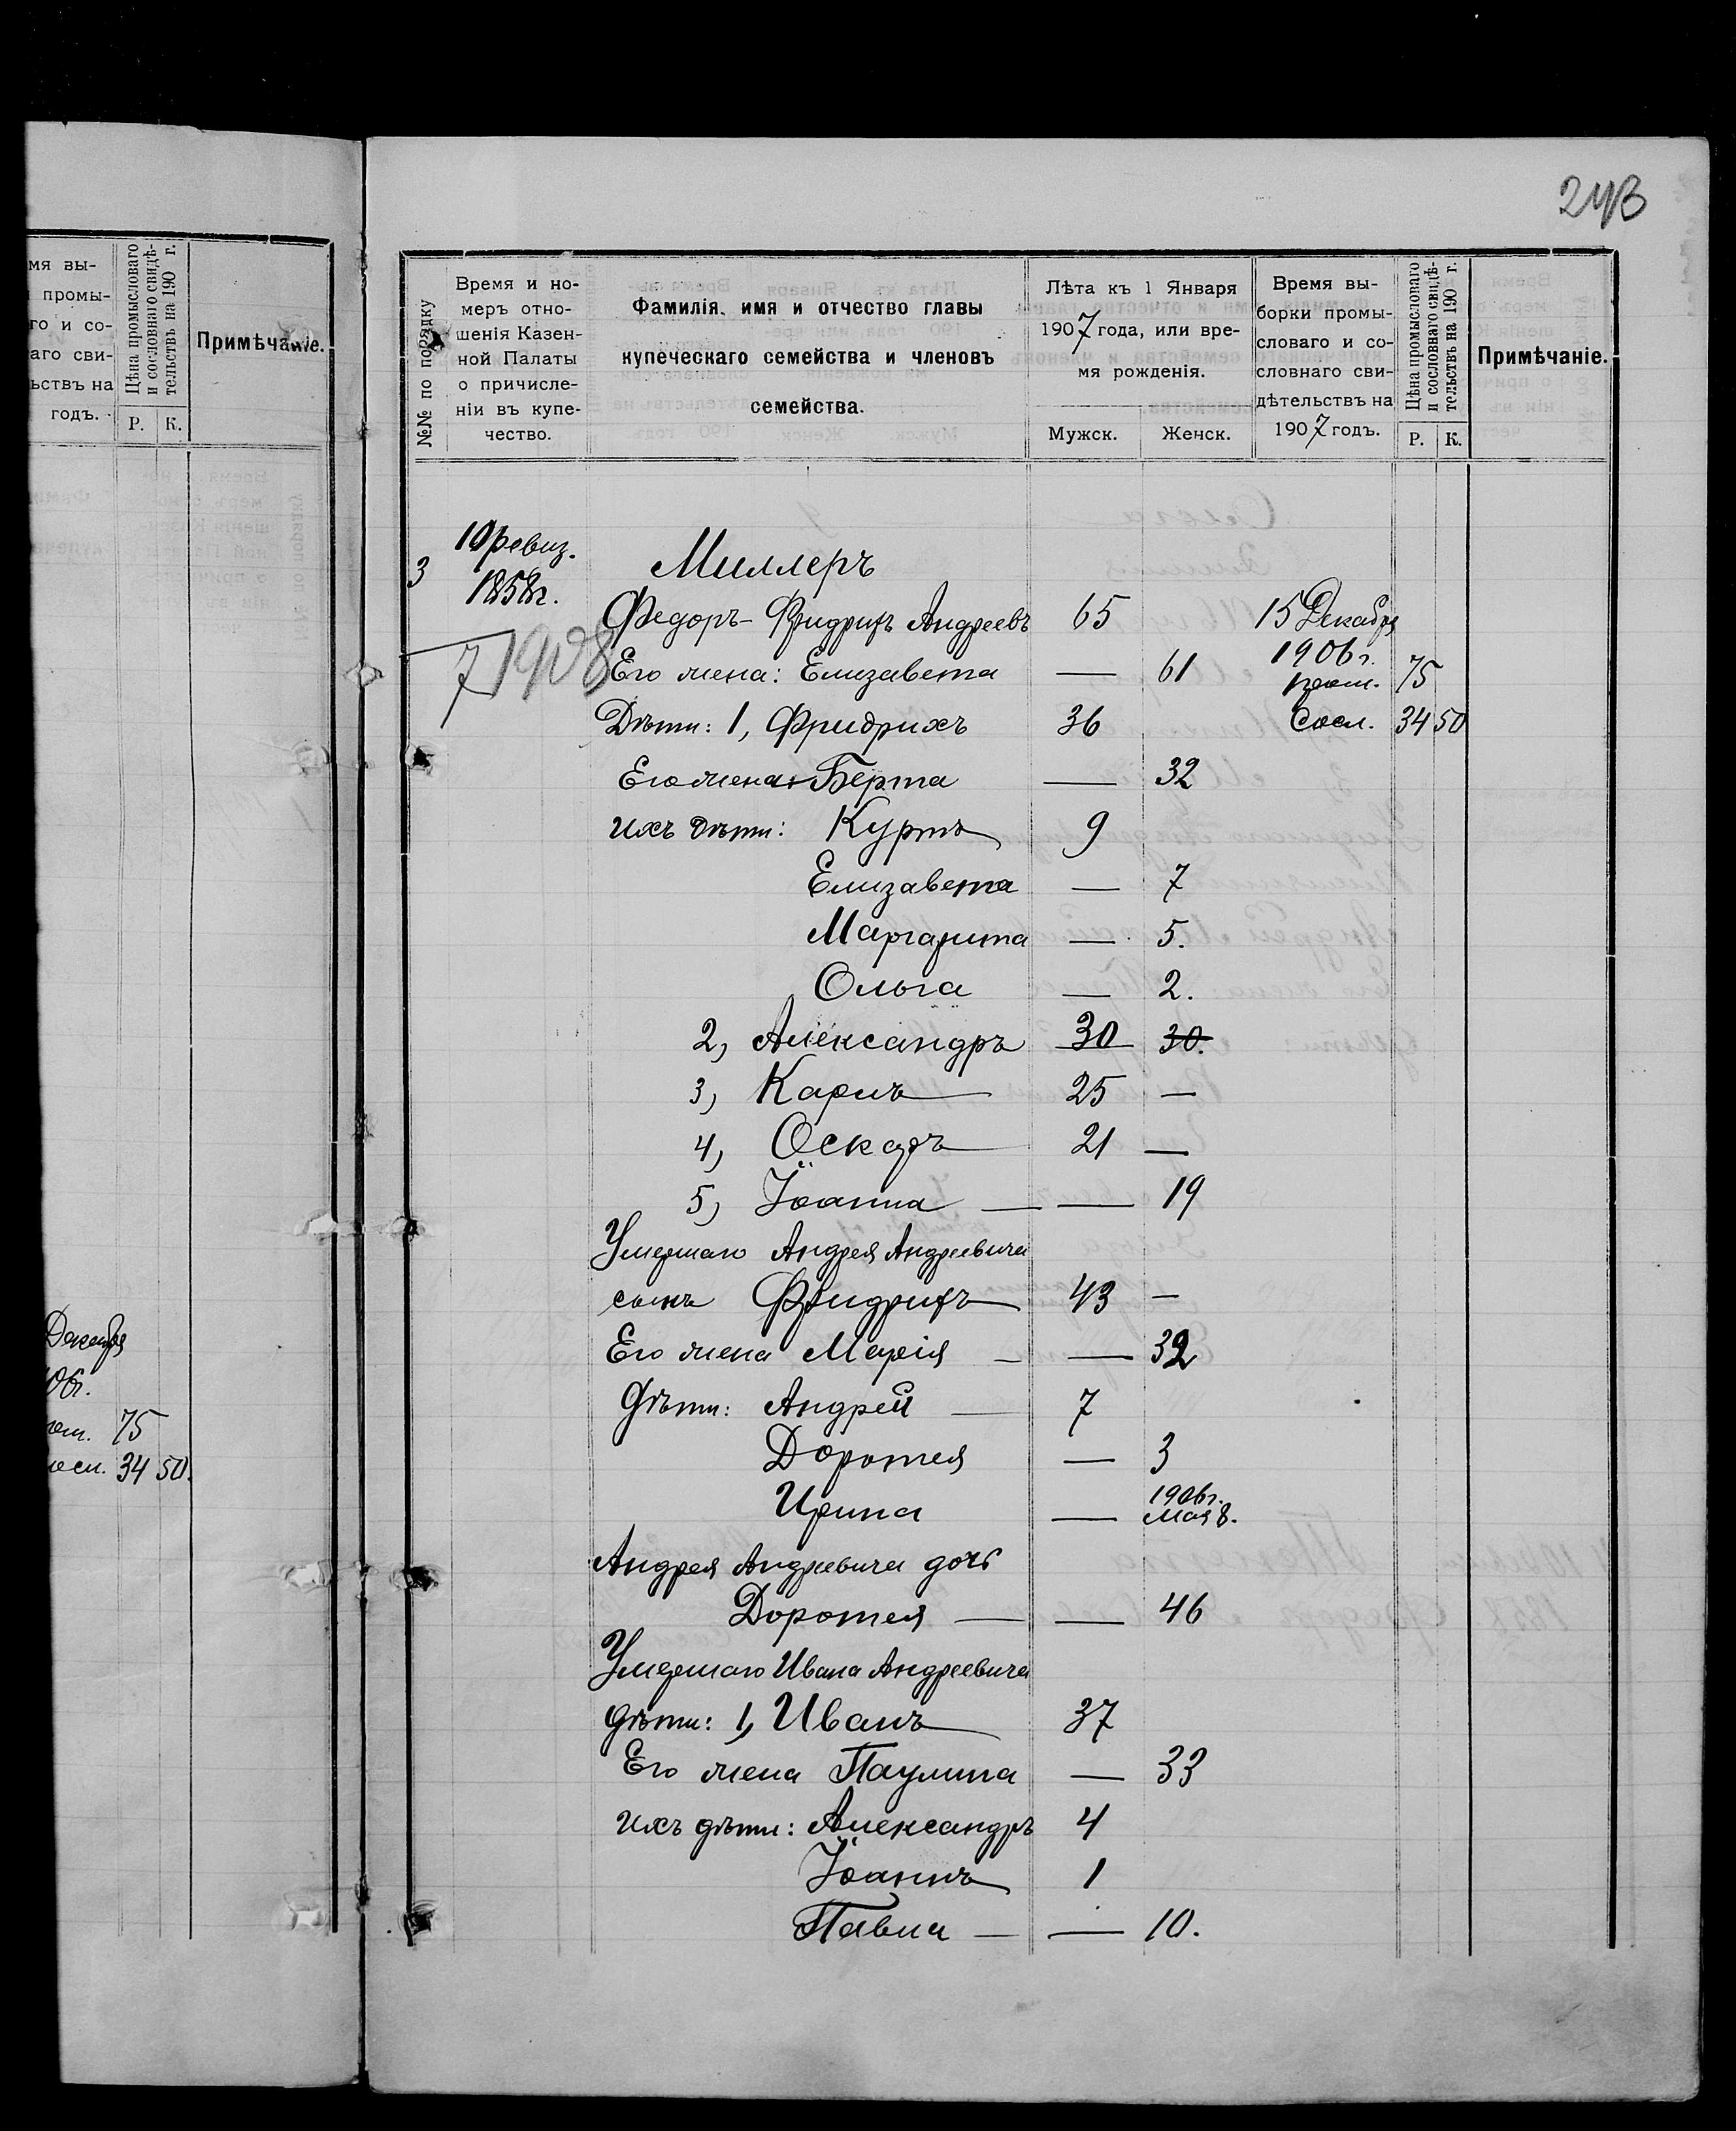 243
мя вы-
промы-
го и со-
аго сви-
ьствъ на
годъ.
Цѣна промысловаго
и сословнаго свидѣ-
тельствъ на 190 г.
Р. К.
Примѣчаніе.
Декабря
06г.
75
сосл. 34 50.
№№ по порядку
Время и но-
меръ отно-
шенія Казен-
ной Палаты
о причисле-
ніи въ купе-
чество.
Фамилія, имя и отчество главы
купеческаго семейства и членовъ
семейства.
Лѣта къ 1 Января
1907 года, или вре-
мя рожденія.
Мужск. Женск.
Время вы-
борки промы-
словаго и со-
словнаго сви-
дѣтельствъ на
1907 годъ.
Цѣна промысловаго
и сословнаго свидѣ-
тельствъ на 190 г.
Р. К.
Примѣчаніе.
3 10 ревиз. Миллеръ
1858г.
Федоръ-Фридрихъ Андреевъ 65 15 Декабря
7 1908 Его жена: Елизавета — 61 1906г.
пром. 75
Дѣти: 1, Фридрихъ 36 Сосл. 34 50
Его жена: Берта — 32
ихъ дѣти: Куртъ 9
Елизавета — 7
Маргарита — 5.
Ольга — 2.
2, Александръ 30 30.
3, Карлъ — 25 —
4, Оскаръ — 21 —
5, Іоанна — — 19
Умершаго Андрея Андреевича
сынъ Фридрихъ — 43 —
Его жена Марія — — 32
Дѣти: Андрей — 7
Доротея — 3
Ирина — 1906г.
мая 8.
Андрея Андреевича дочь
Доротея — — 46
Умершаго Ивана Андреевича
дѣти: 1, Иванъ 37
Его жена Паулина — 33
ихъ дѣти: Александръ 4
Іоаннъ 1
Павла — — 10.